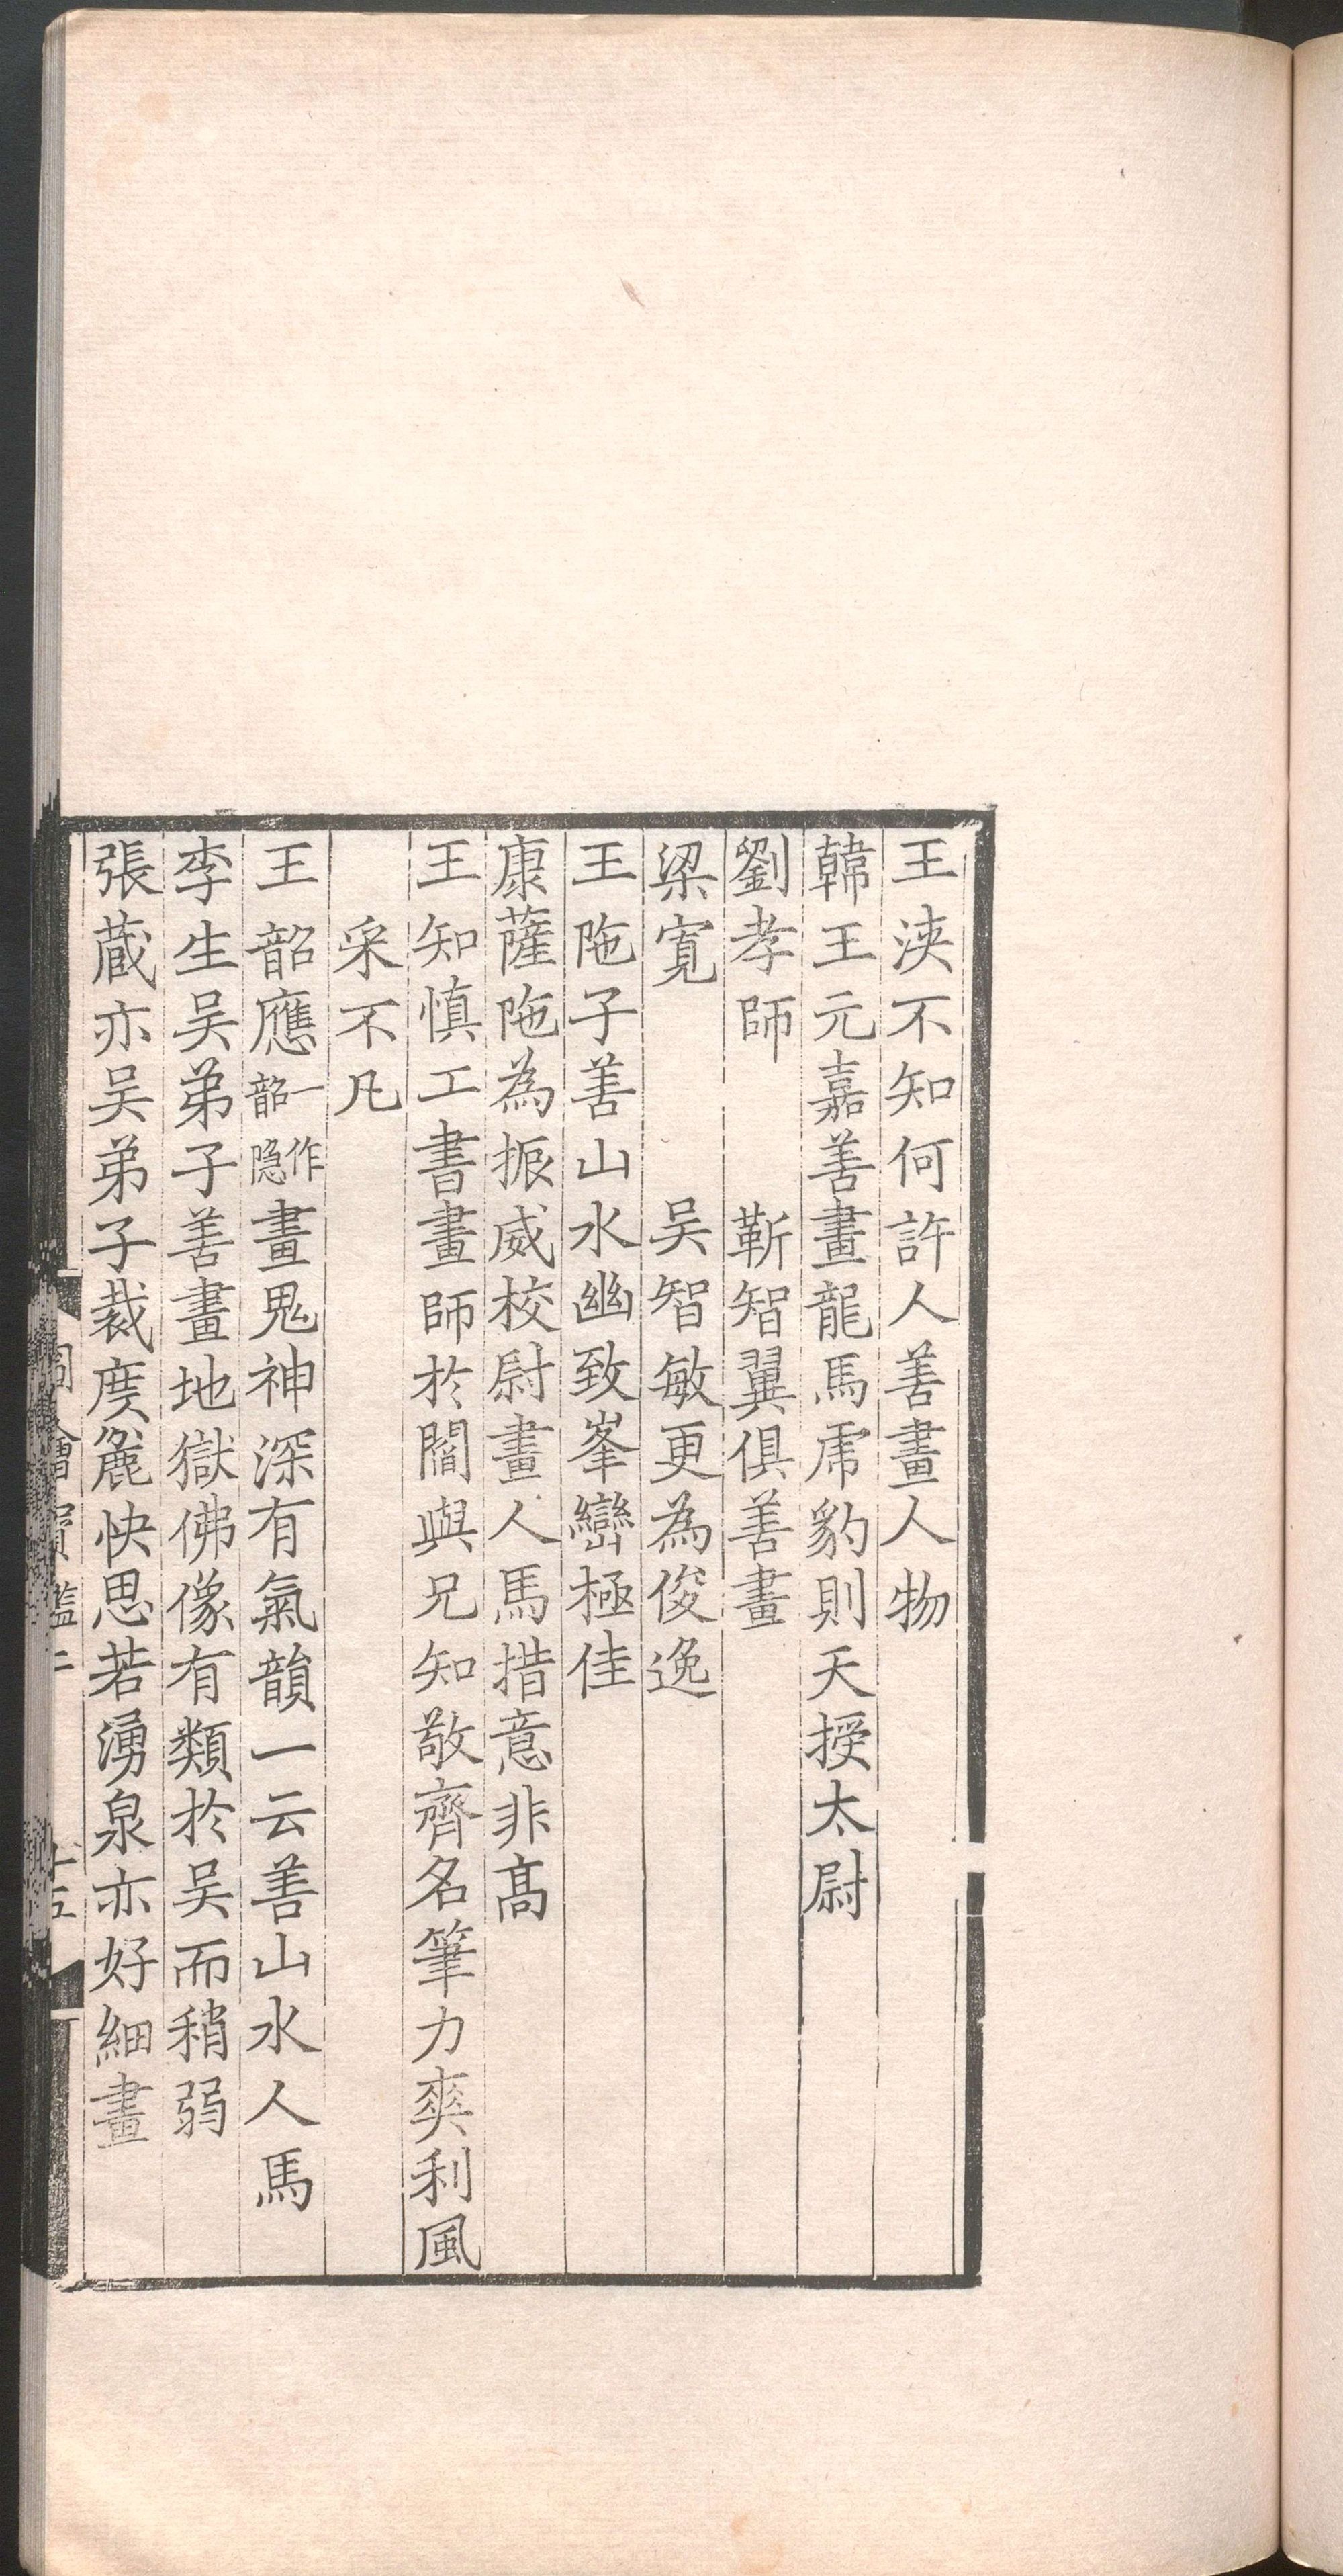 王浹不知何許人善畫人物
韓王元嘉善畫龍馬虎豹則天授太尉
劉孝師　靳智翼俱善畫
梁寬　吳智敏更為俊逸
王陁子善山水幽致峯巒極佳
康薩陁為振威校尉畫人馬措意非高
王知慎工書畫師於閻與兄知敬齊名筆力爽利風
采不凡
王韶應一作韶隱畫鬼神深有氣韻一云善山水人馬
李生吳弟子善畫地獄佛像有類於吳而稍弱
張藏亦吳弟子裁度麄快思若湧泉亦好細畫
繪寶鑑二
十五